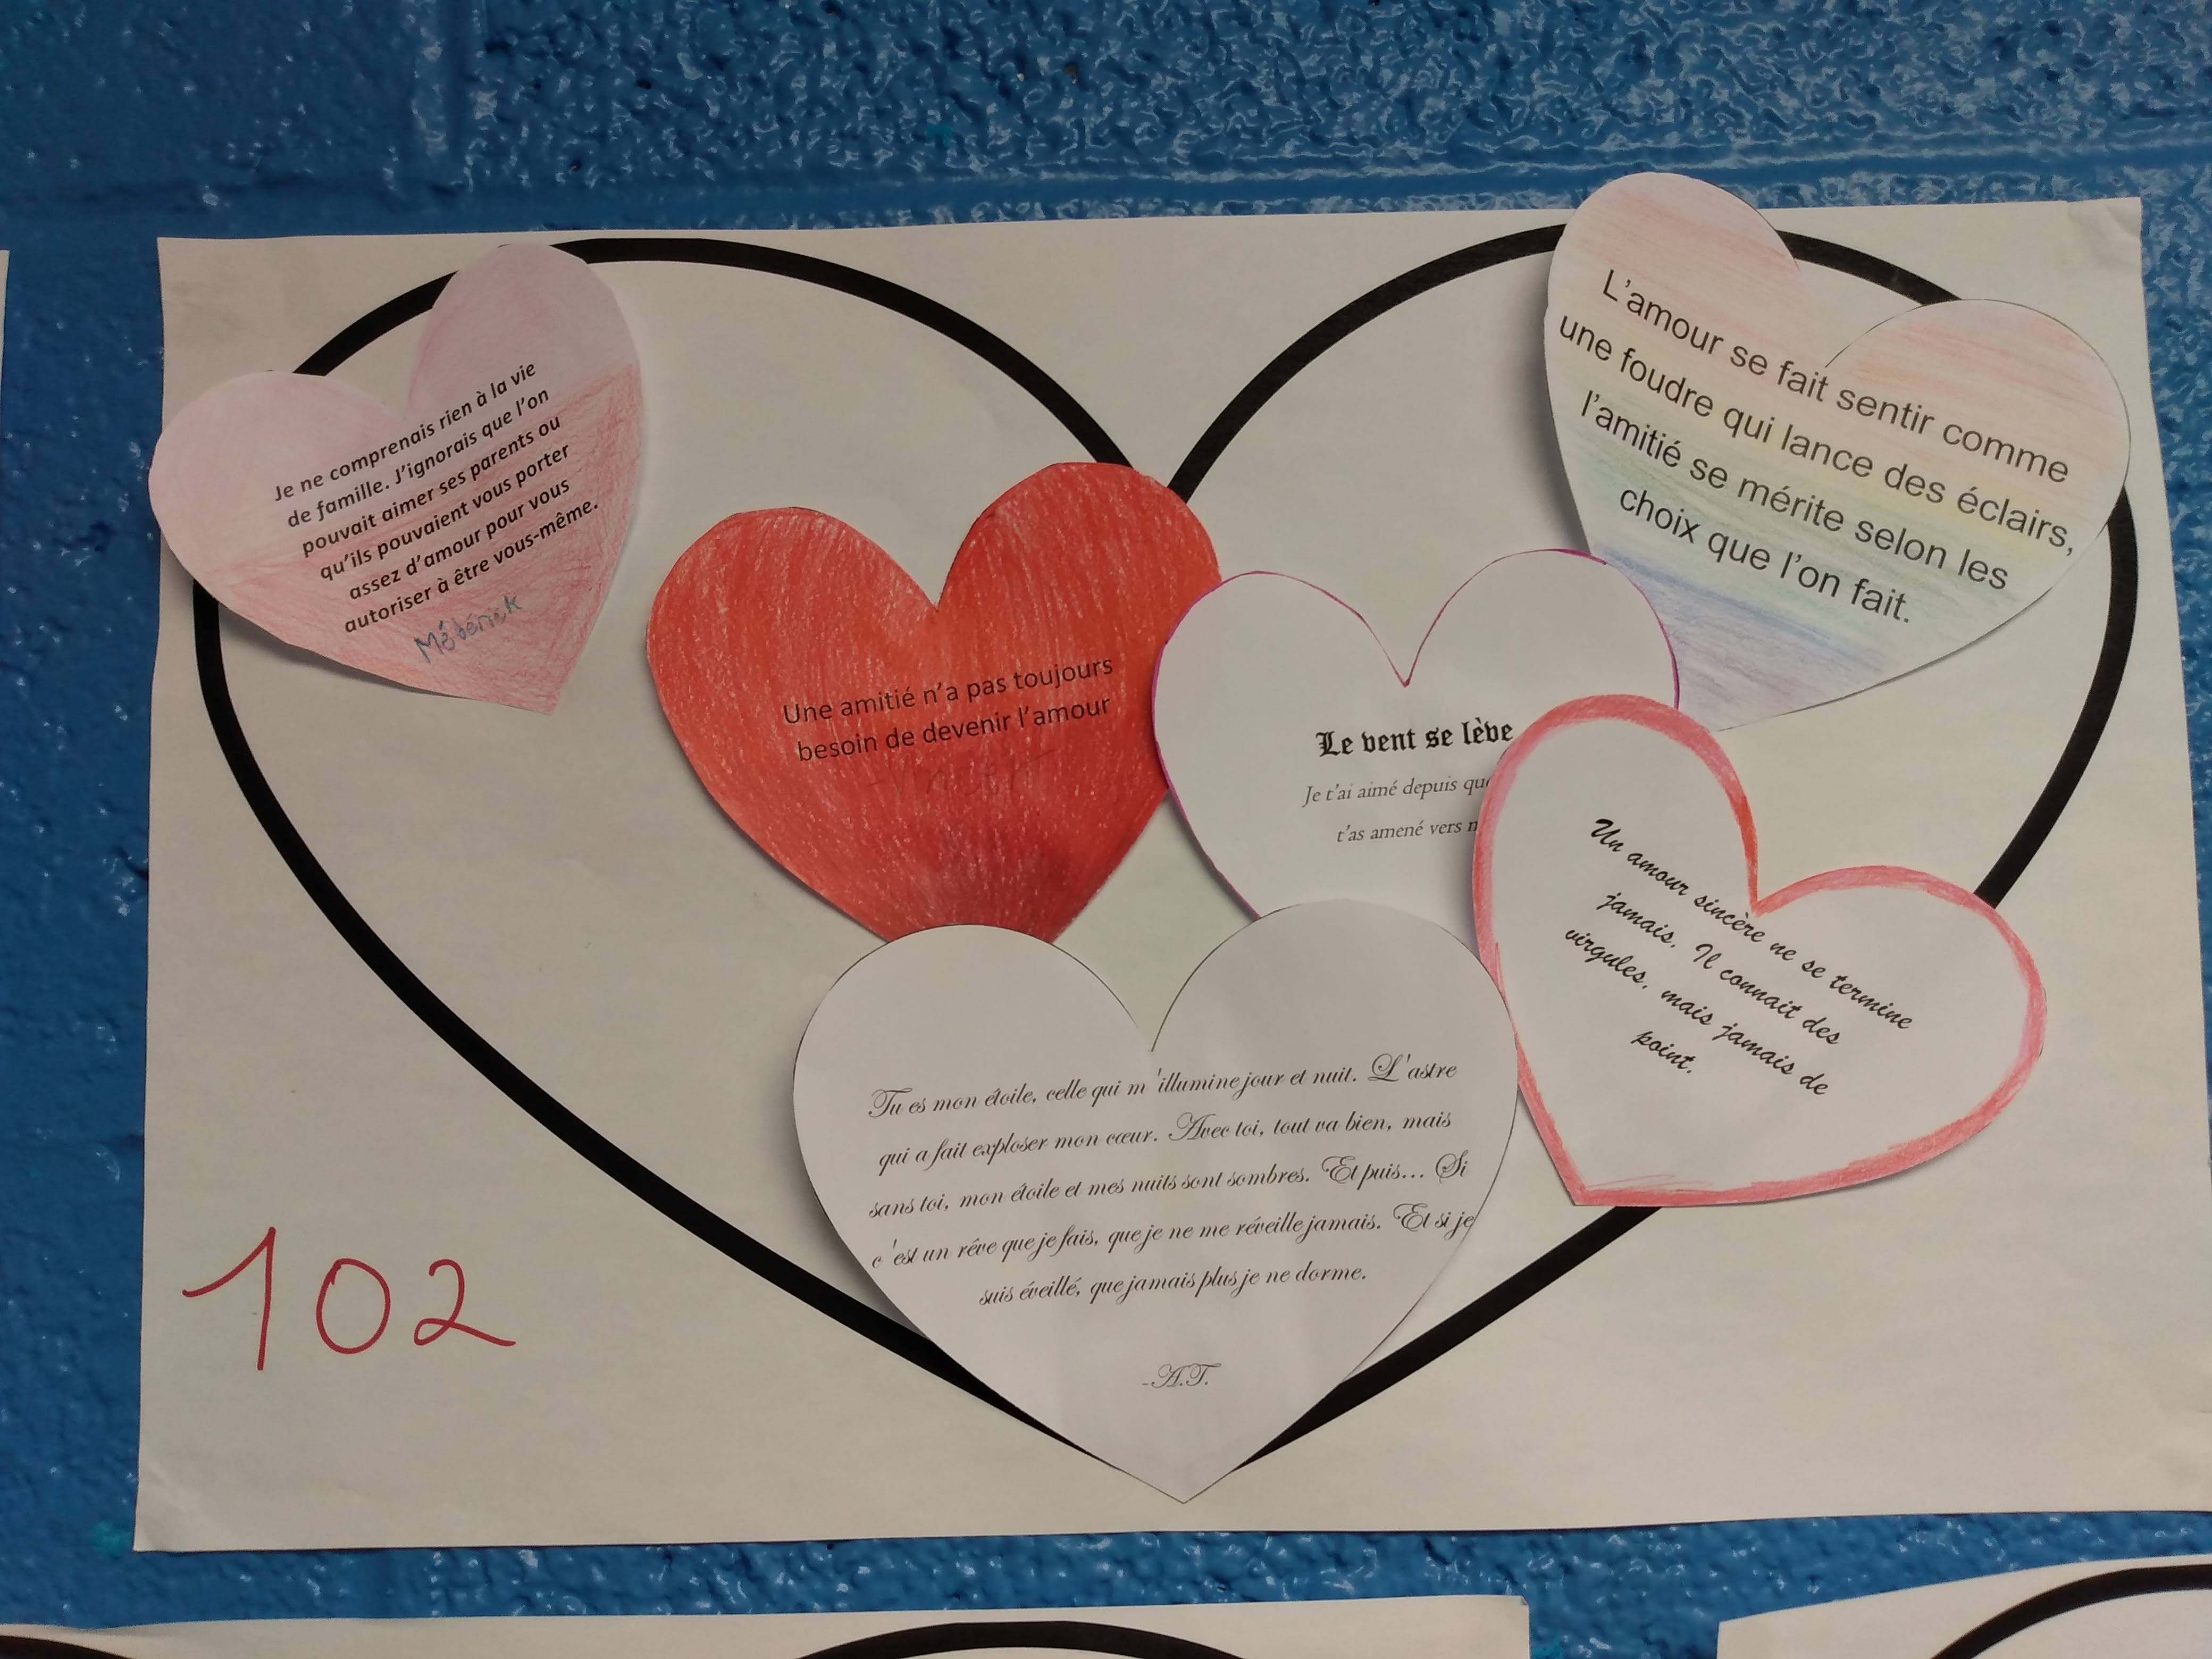 Je ne comprenais rien à la vie
de famille. J'ignorais que l'on
pouvait aimer ses parents ou
qu'ils pouvaient vous porter
assez d'amour pour vous
autoriser à être vous-même.
Une amitié n'a pas toujours
besoin de devenir l'amour
-Vincent
Le vent se lève
Je t'ai aimé depuis que
t'as amené vers
L'amour se fait sentir comme
une foudre qui lance des éclairs,
l'amitié se mérite selon les
choix que l'on fait.
Un amour sincère ne se termine
jamais. Il connait des
virgules, mais jamais de
point.
Tu es mon étoile, celle qui m'illumine jour et nuit. L'astre
qui a fait exploser mon cœur. Avec toi, tout va bien, mais
sans toi, mon étoile et mes nuits sont sombres. Et puis... Si
c'est un rêve que je fais, que je ne me réveille jamais. Et si je
suis éveillé, que jamais plus je ne dorme.
-A.T.
102